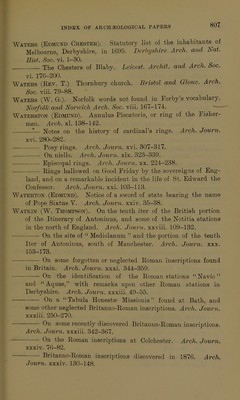 INDEX OF ARCHÆOLOGICAL PAPERS 807
WATERS (EDMUND CHESTER). Statutory list of the inhabitants of
Melbourne, Derbyshire, in 1695. Derbyshire Arch. and Nat.
Hist. Soc. vi. 1-30.
—— The Chesters of Blaby. Leicest. Archit. and Arch. Soc.
vi. 176-200.
WATERS (REV. T.) Thornbury church. Bristol and Glouc. Arch.
Soc. viii. 79-88.
WATERS (W. G.). Norfolk words not found in Forby's vocabulary.
Norfolk and Norwich Arch. Soc. viii. 167-174.
WATERTON (EDMUND). Annulus Piscatoris, or ring of the Fisher-
men. Arch. xl. 138-142.
—— Notes on the history of cardinal's rings. Arch. Journ.
xvi. 280-282.
—— Posy rings. Arch. Journ. xvi. 307-317.
—— On niello. Arch. Journ. xix. 323-339.
—— Episcopal rings. Arch. Journ. xx. 224-238.
—— Rings hallowed on Good Friday by the sovereigns of Eng-
land, and on a remarkable incident in the life of St. Edward the
Confessor. Arch. Journ. xxi. 103-113.
WATERTON (EDMUND). Notice of a sword of state bearing the name
of Pope Sixtus V. Arch. Journ. xxiv. 35-38.
WATKIN (W. THOMPSON). On the tenth iter of the British portion
of the Itinerary of Antoninus, and some of the Notitia stations
in the north of England. Arch. Journ. xxviii. 109-132.
—— On the site of "Mediolanum" and the portion of the tenth
Iter of Antoninus, south of Manchester. Arch. Journ. xxx.
153-173.
—— On some forgotten or neglected Roman inscriptions found
in Britain. Arch. Journ. xxxi. 344-359.
—— On the identification of the Roman stations "Navio"
and "Aquæ," with remarks upon other Roman stations in
Derbyshire. Arch. Journ. xxxiii. 49-55.
—— On a "Tabula Honestæ Missionis" found at Bath, and
some other neglected Britanno-Roman inscriptions. Arch. Journ.
xxxiii. 250-270.
—— On some recently discovered Britanno-Roman inscriptions.
Arch. Journ. xxxiii. 342-367.
—— On the Roman inscriptions at Colchester. Arch. Journ.
xxxiv. 76-82.
—— Britanno-Roman inscriptions discovered in 1876. Arch.
Journ. xxxiv. 130-148.